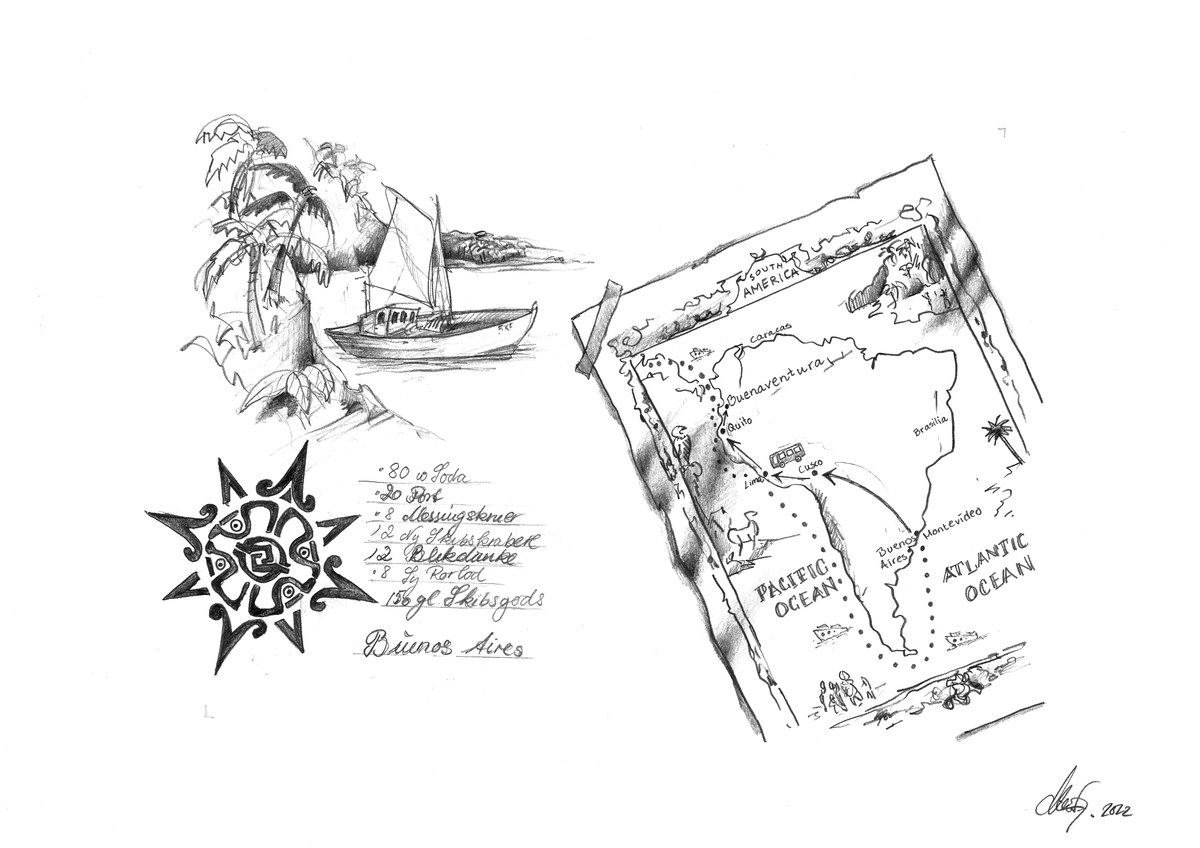 80 w Soda
20 Port
8 Messingskruer
12 Ny Skibsskrabere
12 Blikdanke
8 Sy Rorlod
150 gl Skibsgods
Bŭenos Aires
SOUTH
AMERICA
Caracas
Buenaventura
Quito
Brasilia
Lima
Cusco
Buenos
Aires
Montevideo
PACIFIC
OCEAN
ATLANTIC
OCEAN
2022